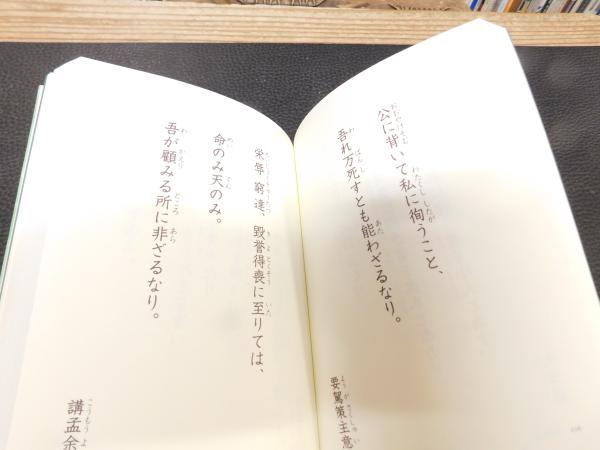 公に背いて私に徇うこと、
吾れ万死すとも能わざるなり。
要駕策主意
栄辱窮達、毀誉得喪に至りては、
命のみ天のみ。
吾が顧みる所に非ざるなり。
講孟余